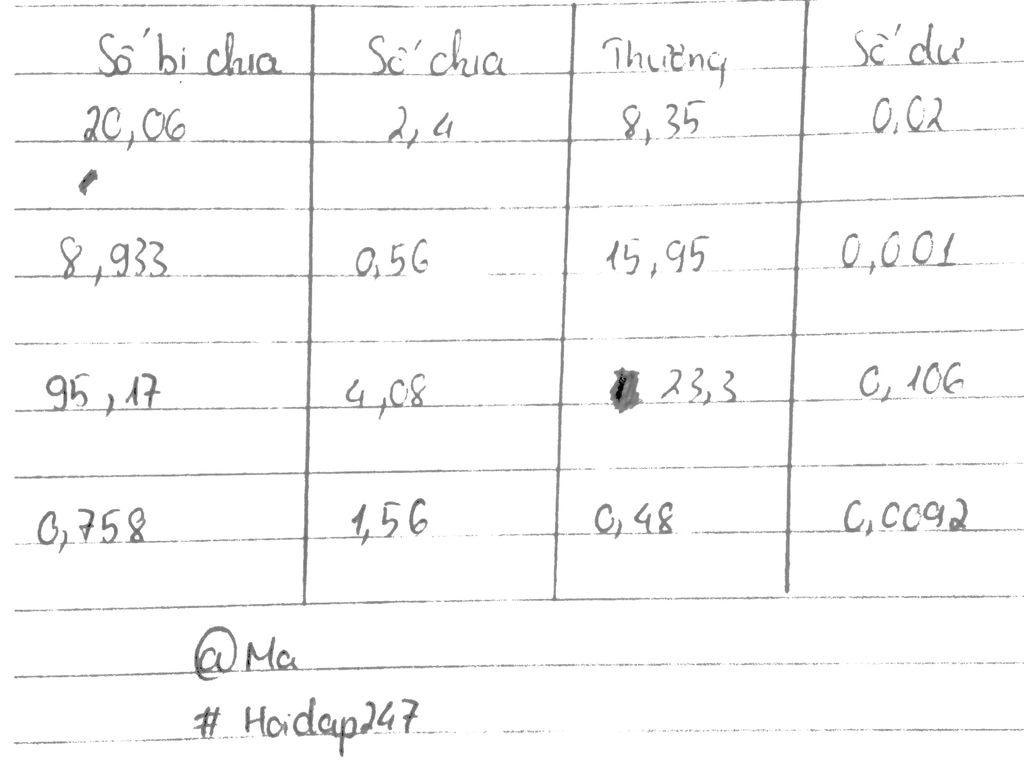 Số bị chia Số chia Thương Số dư
20,06 2,4 8,35 0,02
8,933 0,56 15,95 0,001
95,17 4,08 23,3 0,106
0,758 1,56 0,48 0,0092
@Ma
# Hoidap247